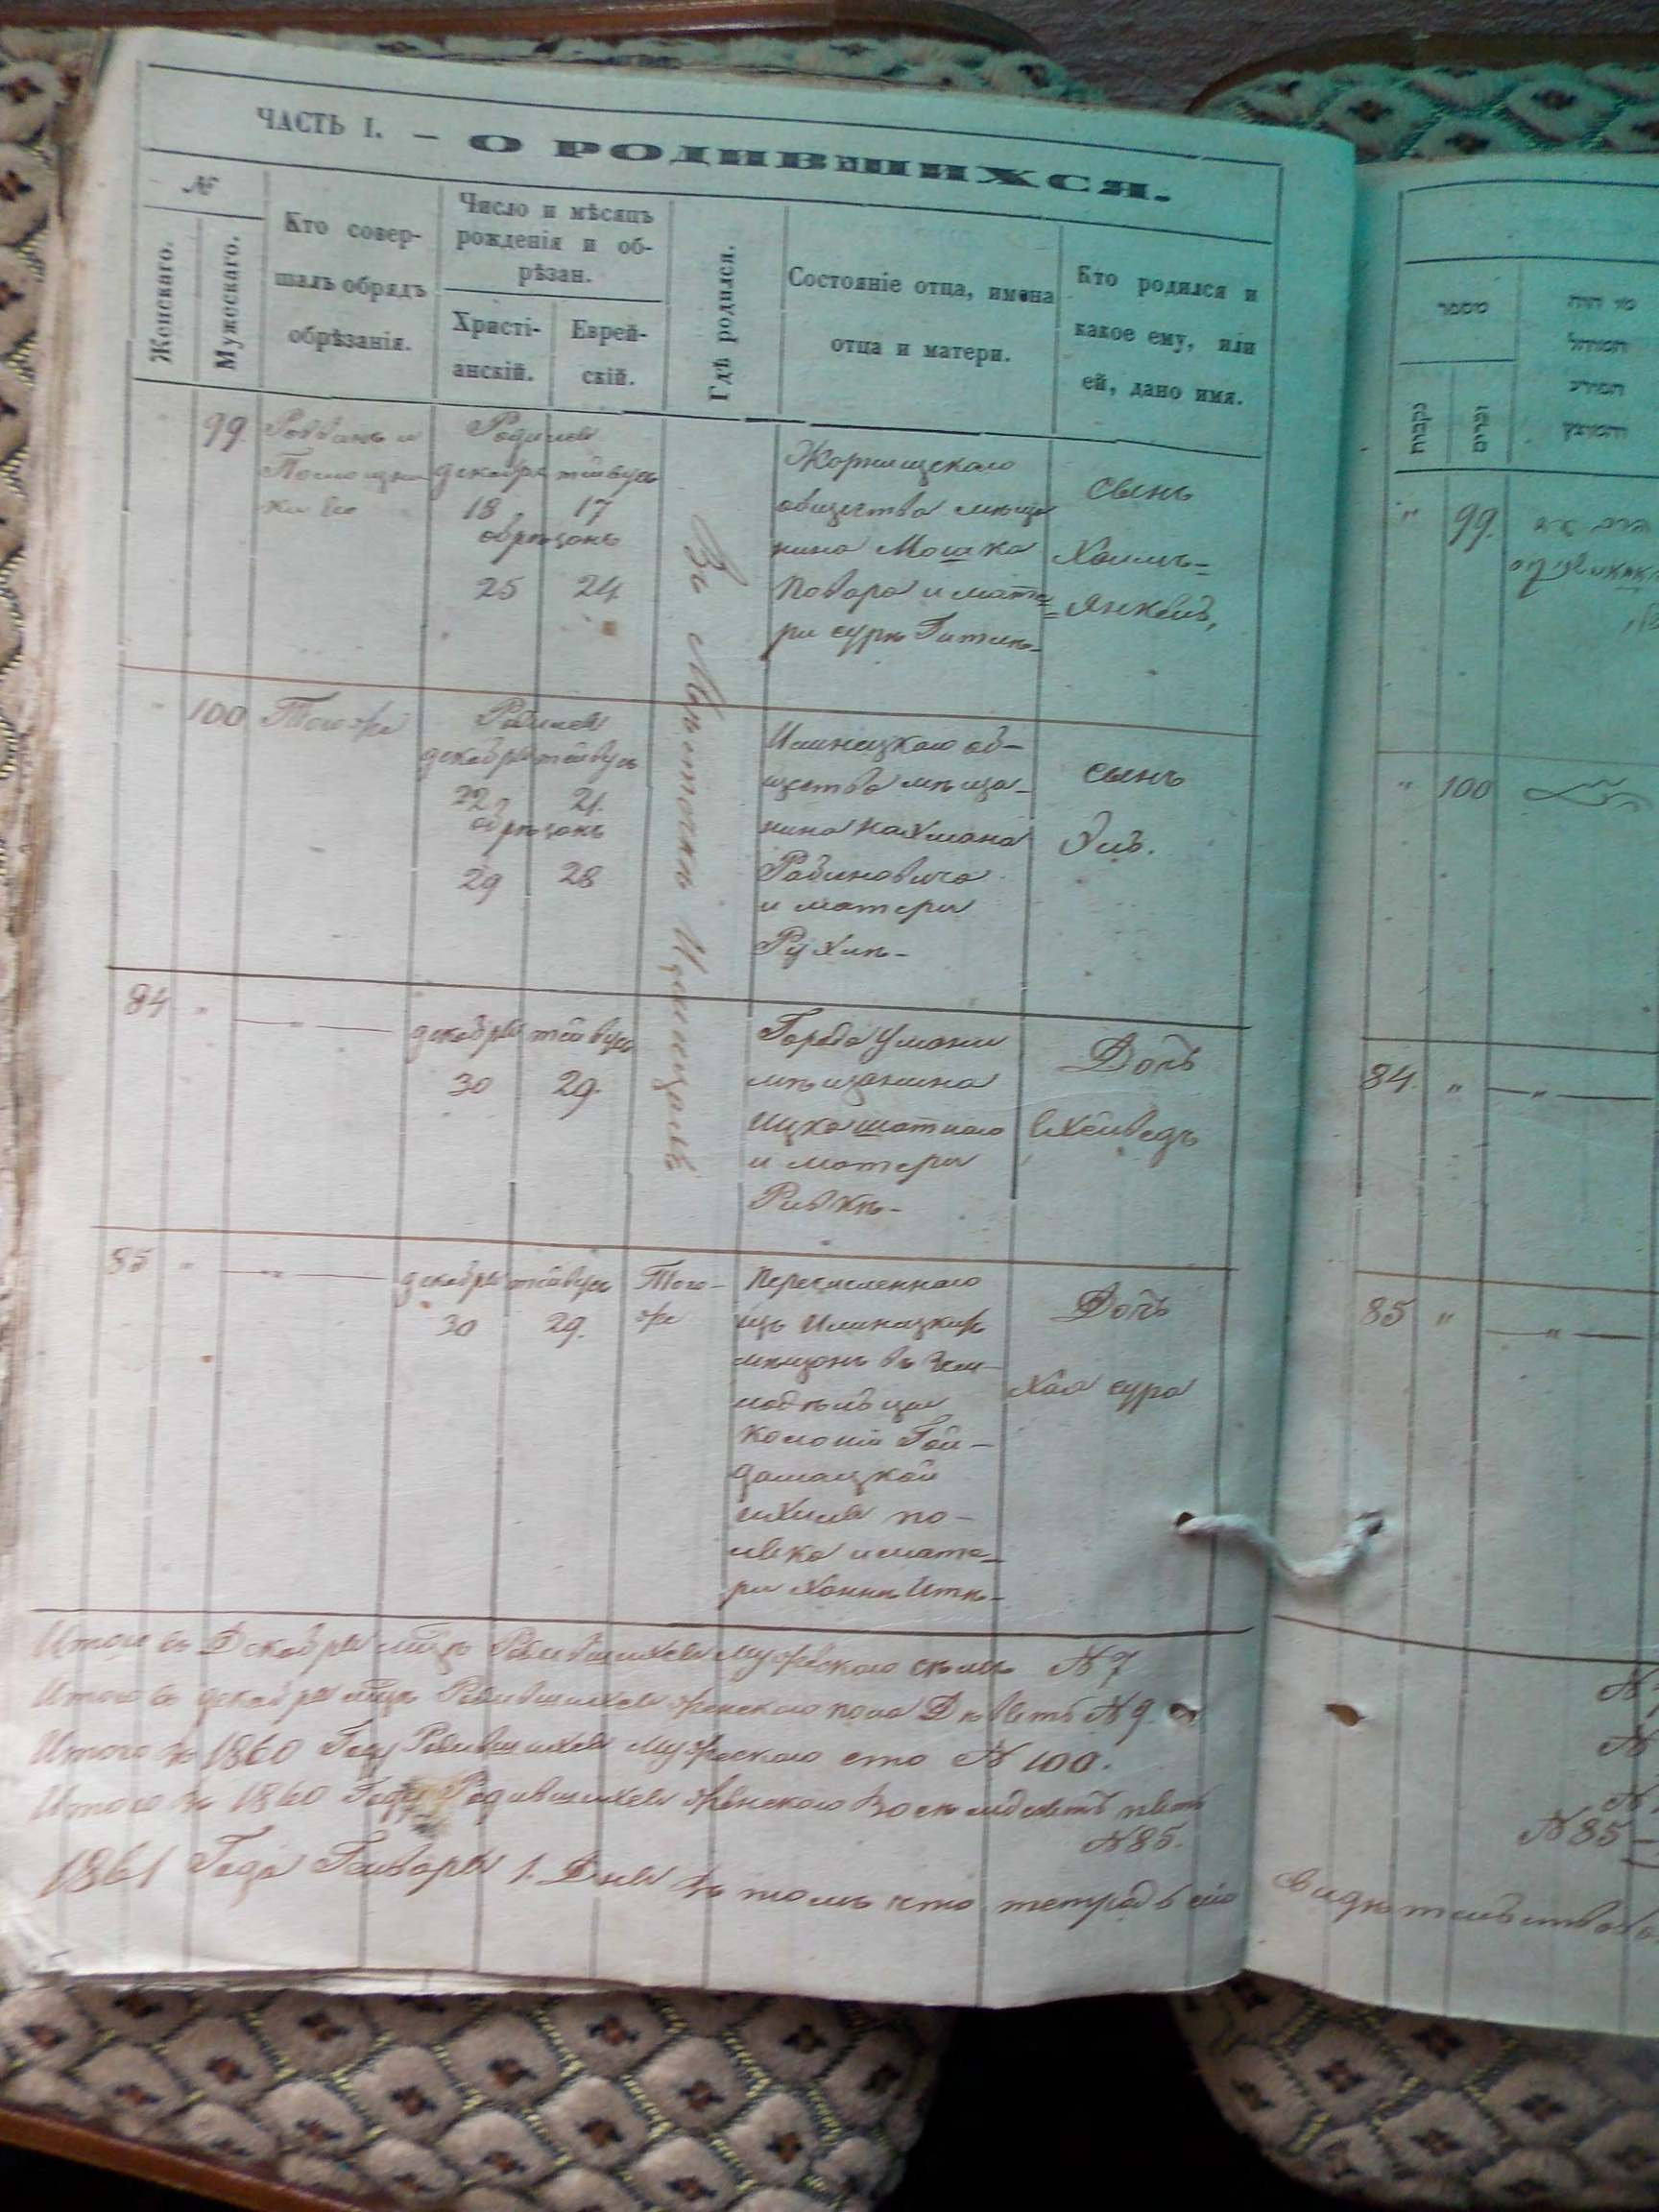 ЧАСТЬ I. — О РОДИВШИХСЯ.
№
Женскаго.
Мужескаго.
Кто совер-
шалъ обрядъ
обрѣзанія.
Число и мѣсяцъ
рожденія и об-
рѣзан.
Христі-
анскій.
Еврей-
скій.
Гдѣ родился.
Состояніе отца, имена
отца и матери.
Кто родился и
какое ему, или
ей, дано имя.
99
Раввинъ и
Помощни
ки его
Родился
декабря тейвусъ
18 17
обрѣзанъ
25 24
Въ Мѣстечкѣ
общества мѣща
нина Мошка
Повара и мате
ри суры Гитли-
сынъ
Хаимъ=
=Янкель,
100
Того же
Родился
декабря тейвусъ
22 21.
обрѣзанъ
29 28
Илинецкаго об-
щества мѣща-
нина Нахмана
Рабиновича
и матери
Рухли-
сынъ
84 "
— " —
декабря тейвусъ
30 29.
Города Умани
мѣщанина
Ицка
и матери
Ривки-
Дочь
85 "
— " —
декабря тейвусъ
30 29.
Того-
же
Перечисленнаго
изъ Илинецкихъ
мѣщанъ въ Зем-
ледѣльцы
Колоніи Гай-
дамацкой
и мате-
ри Ханы Ити-
Дочь
Хая сура
Итого въ Декабрѣ мцѣ Родившихся мужескаго семь № 7
Итого въ декабрѣ мцѣ Родившихся женскаго пола Девять № 9.
Итого въ 1860 Году Родившихся Мужескаго сто № 100.
Итого въ 1860 Году Родившихся женскаго Восемдесятъ пять
№ 85.
1861 Года Генваря 1. Дня въ томъ что тетрадь сію
מספר
נקבות
זכרים
מי היה
המוהל
" 99.
" 100
84. " — " —
85 " — " —
№ 85 —